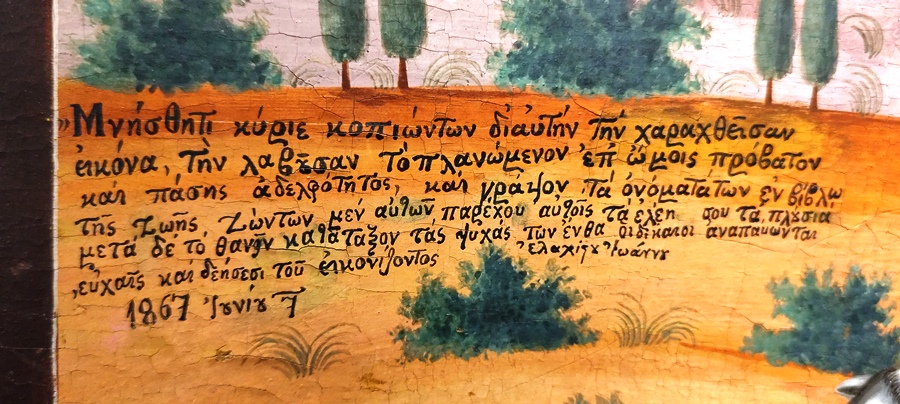 "Μνήσθητι κύριε κοπιώντων δἰαυτήν τὴν χαραχθεῖσαν
εἰκόνα, τὴν λαβȣ̃σαν τὸ πλανώμενον ἐπ' ὤμοις πρόβατον
καὶ πάσης ἀδελφότητος, καὶ γράψον τὰ ὀνόματάτων ἐν βίβλω
τῆς ζωῆς ζώντων μεν αὐτῶν παρέχου αὐτοῖς τά ἐλέη σου τα πλȣσια
μετά δε τὸ θανῆν κατάταξον τας ψυχας των ἔνθα οἱ δίκαιοι αναπαυωνται
,εὐχαῖς καὶ δεήσεσι τοῦ εἰκονίζοντος ἐλαχίςȣ Ἰωάννȣ
1867 Ἰȣνίȣ 7